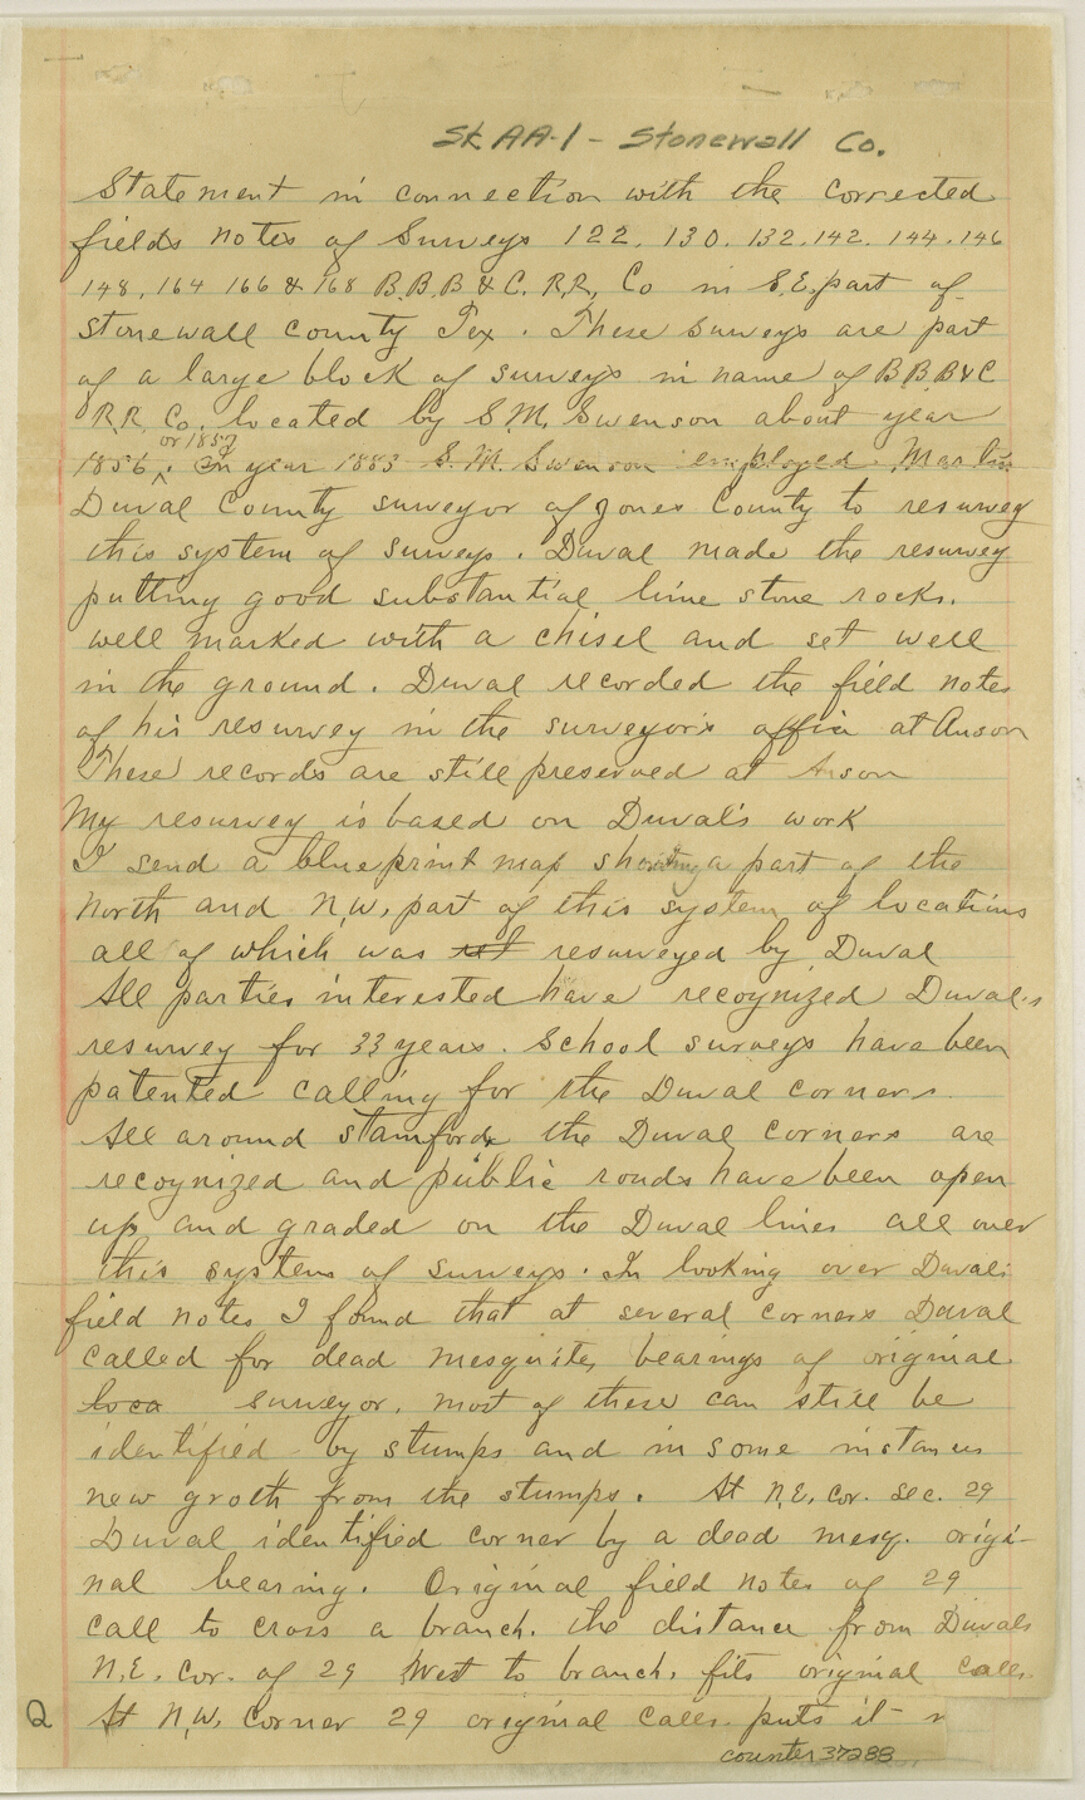 Sk AA-1 - Stonewall Co.
Statement in connection with the corrected
fields notes of Surveys 122. 130. 132. 142. 144. 146
148. 164 166 & 168 B.B.B & C. R.R. Co in S.E. part of
Stonewall County Tex. These surveys are part
of a large block of surveys in name of B.B.B & C
R.R. Co. located by S.M. Swenson about year
or 1857
1856. In year 1883 S. M. Swenson employed Martin
Duval County surveyor of Jones County to resurvey
this system of surveys. Duval made the resurvey
putting good substantial lime stone rocks.
well marked with a chisel and set well
in the ground. Duval recorded the field notes
of his resurvey in the surveyor's office at Anson
These records are still preserved at Anson
My resurvey is based on Duval's work
I send a blue print map showing a part of the
North and N.W. part of this system of locations
all of which was resurveyed by Duval
All parties interested have recognized Duval's
resurvey for 33 years. School surveys have been
patented calling for the Duval corners.
All around Stamford the Duval corners are
recognized and public roads have been open
up and graded on the Duval lines all over
this system of surveys. In looking over Duvals
field notes I found that at several corners Duval
called for dead mesquite bearings of original
loca surveyor. most of these can still be
identified by stumps and in some instances
new groth from the stumps. At N.E. Cor. Sec. 29
Duval identified corner by a dead mesq. origi-
nal bearing. Original field notes of 29
call to cross a branch. the distance from Duvals
N.E. Cor. of 29 West to branch. fits original calls.
At N.W. Corner 29 original calls puts it
2
counter 37288